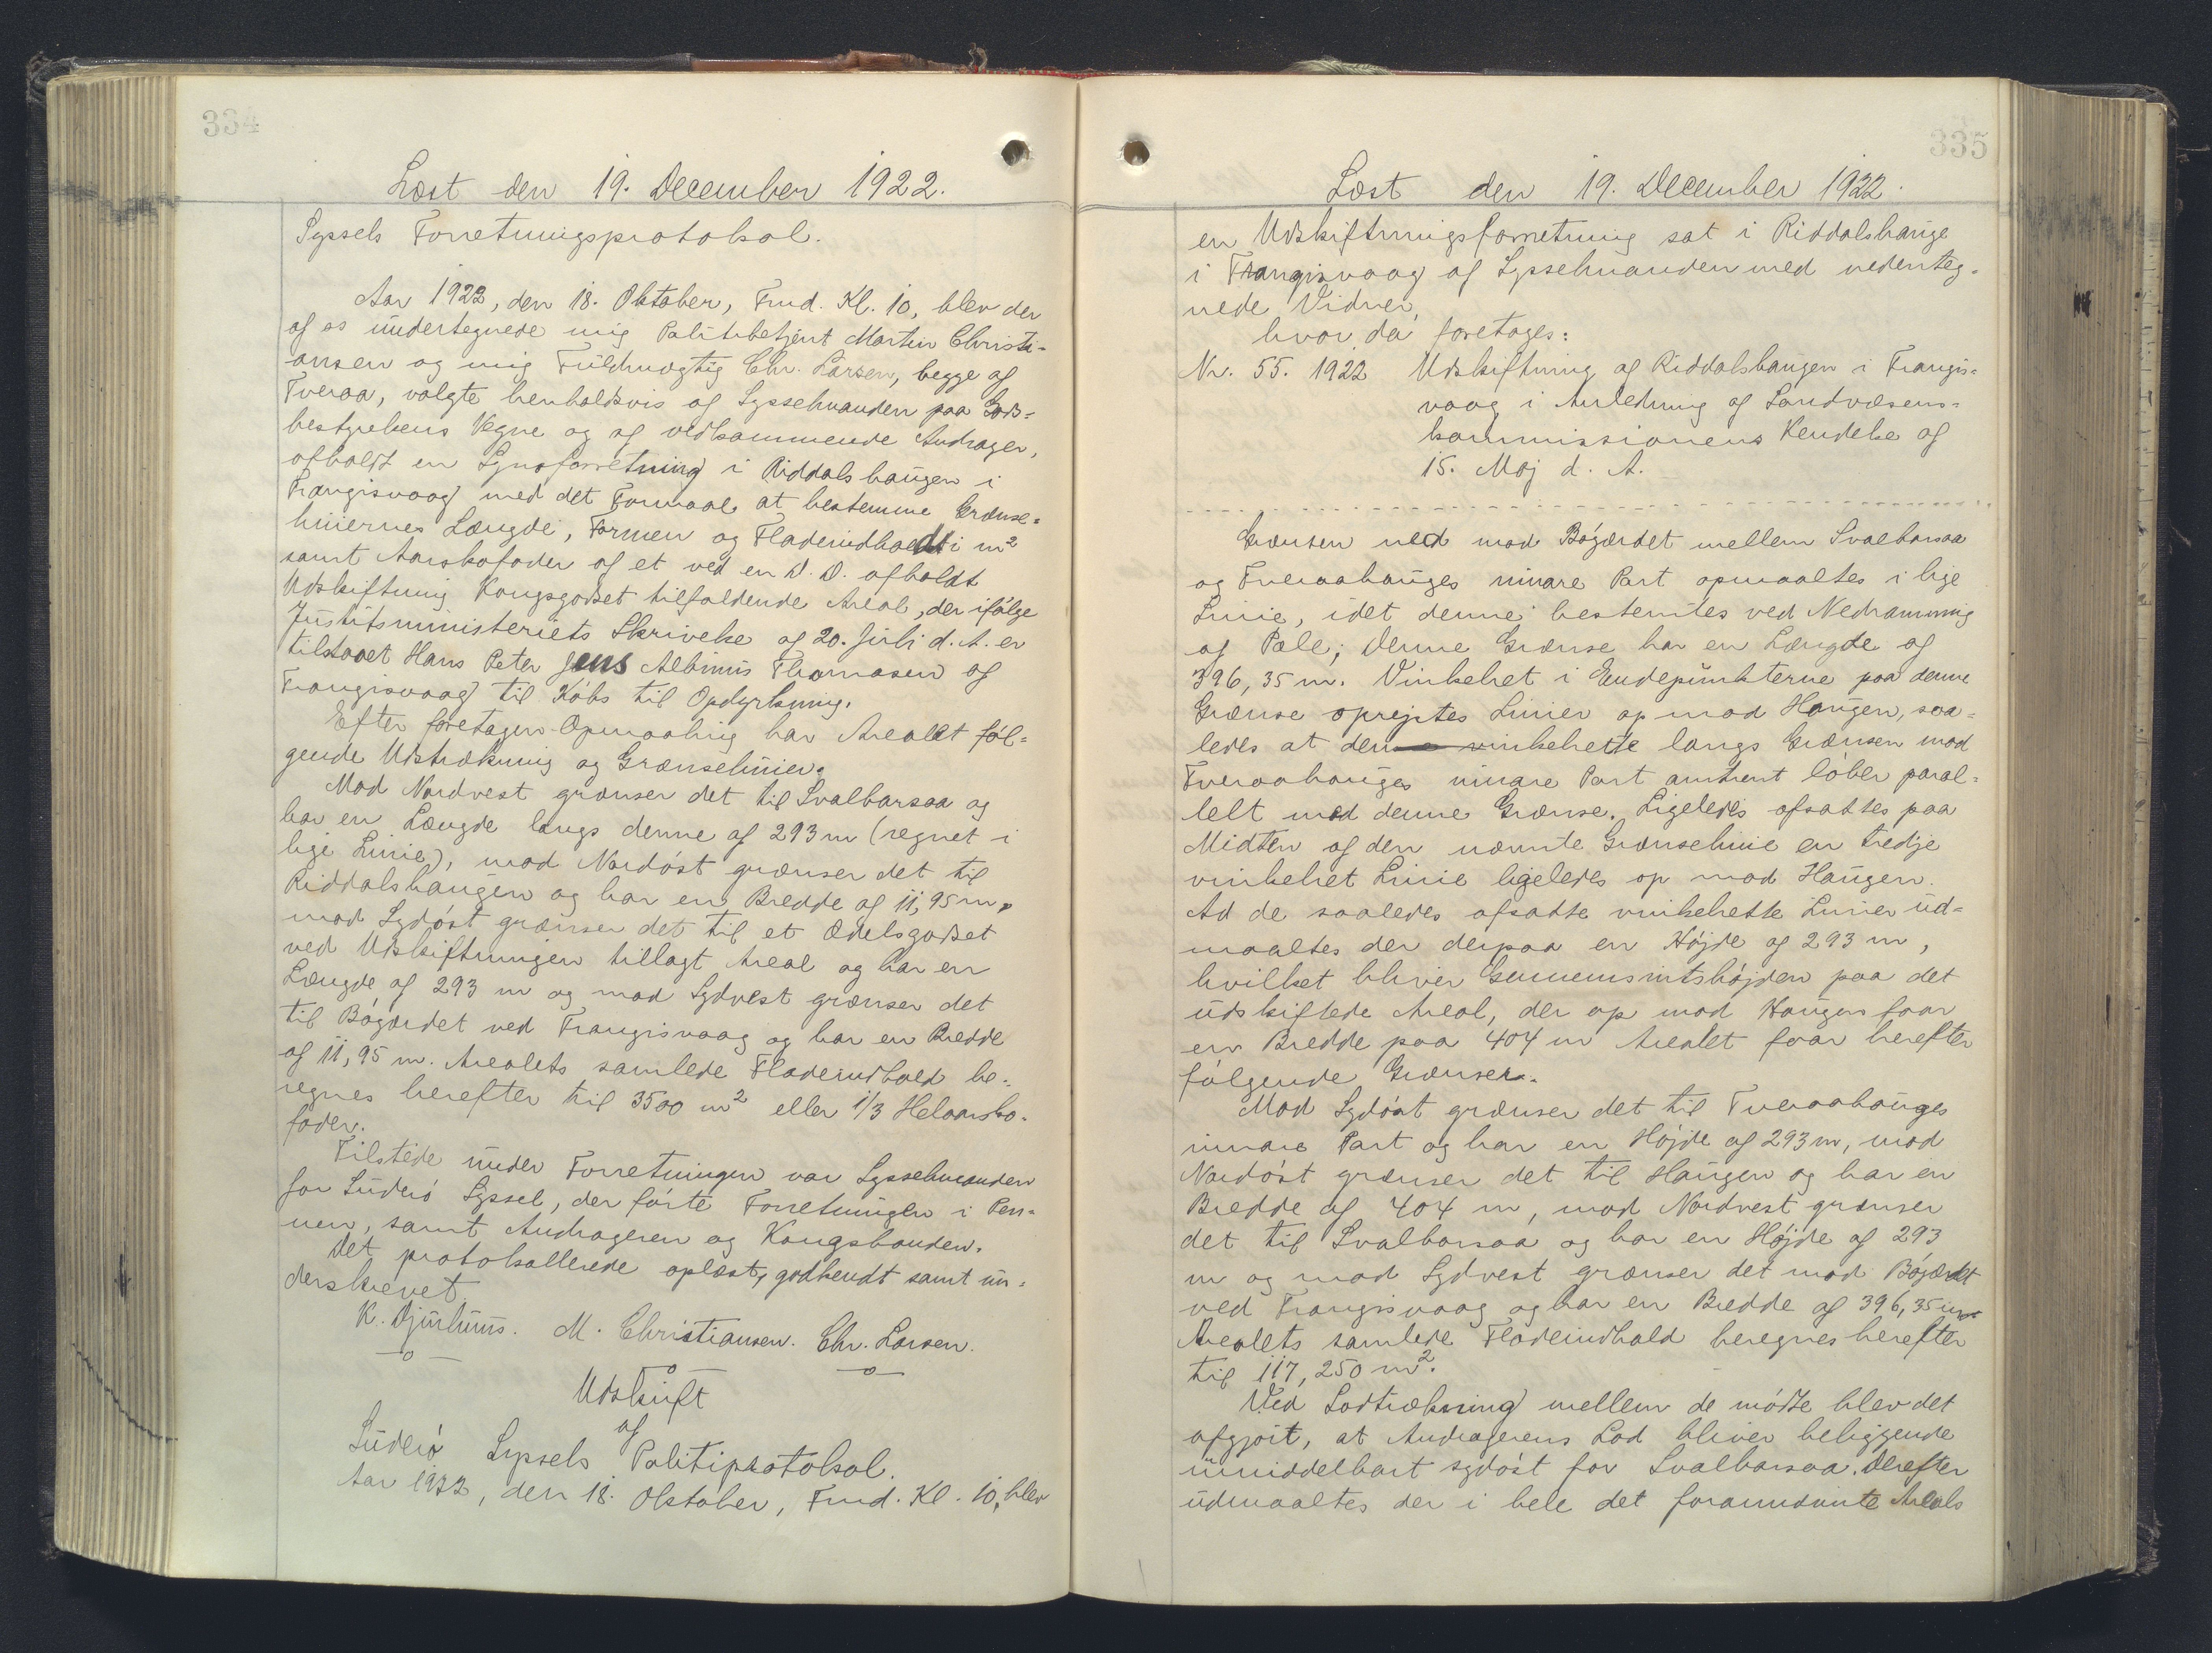 334
Læst den 19. December 1922.
Syssels Forretningsprotokol.
Aar 1922, den 18. Oktober, Fmd. Kl. 10, blev der
af os undertegnede mig Politibetjent Martin Christi-
ansen og mig Fuldmægtig Chr. Larsen, begge af
Tveraa, valgte henholdsvis af Sysselmanden paa Gods-
bestyrelsens Vegne og af vedkommende Andrager,
afholdt en Synsforretning i Riddalshaugen i
Trangisvaag med det Formaal at bestemme Grænse-
liniernes Længde, Formen og Fladeindholdt i m²
samt Aarskofoder af et ved en D. D. afholdt
Udskiftning Kongsgodset tilfaldende Areal, der ifølge
Justitsministeriets Skrivelse af 20. Juli d. A. er
tilstaaet Hans Peter Jens Albinus Thomasen af
Trangisvaag til Købs til Opdyrkning.
Efter foretagen Opmaaling har Arealet føl-
gende Udstrækning og Grænselinier.
Mod Nordvest grænser det til Svalbarsaa og
har en Længde langs denne af 293 m (regnet i
lige Linie), mod Nordøst grænser det til
Riddalshaugen og har en Bredde af 11,95 m,
mod Sydøst grænser det til et Odelsgodset
ved Udskiftningen tillagt Areal og har en
Længde af 293 m og mod Sydvest grænser det
til Bøgærdet ved Trangisvaag og har en Bredde
af 11,95 m. Arealets samlede Fladeindhold be-
regnes herefter til 3500 m² eller 1/3 Helaarsko-
foder.
Tilstede under Forretningen var Sysselmanden
for Suderø Syssel, der førte Forretningen i Pen-
nen, samt Andrageren og Kongsbonden.
Det protokollerede oplæst, godkendt samt un-
derskrevet.
K. Djurhuus. M. Christiansen. Chr. Larsen.
Udskrift
af
Suderø Syssels Politiprotokol.
Aar 1922, den 18. Oktober, Fmd. Kl. 10, blev
335
Læst den 19. December 1922.
en Udskiftningsforretning sat i Riddalshauge
i Trangisvaag af Sysselmanden med undenteg-
nede Vidner,
hvor da foretages:
Nr. 55. 1922 Udskiftning af Riddalshaugen i Trangis-
vaag i Anledning af Landvæsens-
kommissionens Kendelse af
15. Maj d. A.
Grænsen ned mod Bøgærdet mellem Svalbarsaa
og Tveraahauges innare Part opmaaltes i lige
Linie, idet denne bestemtes ved Nedramning
af Pæle; denne Grænse har en Længde af
396,35 m. Vinkelret i Endepunkterne paa denne
Grænse oprejstes Linier op mod Haugen, saa-
ledes at den vinkelrette langs Grænsen mod
Tveraahauges innare Part omtrent løber paral-
lelt med denne Grænse. Ligeledes afsattes paa
Midten af den nævnte Grænselinie en tredje
vinkelret Linie ligeledes op mod Haugen.
Ad de saaledes afsatte vinkelrette Linier ud-
maaltes der derpaa en Højde af 293 m,
hvilket bliver Gennemsnitshøjden paa det
udskiftede Areal, der op mod Haugen faar
en Bredde paa 404 m Arealet faar herefter
følgende Grænser.
Mod Sydøst grænser det til Tveraahauges
innare Part og har en Højde af 293 m, mod
Nordøst grænser det til Haugen og har en
Bredde af 404 m, mod Nordvest grænser
det til Svalbarsaa og har en Højde af 293
m og mod Sydvest grænser det mod Bøgærdet
ved Trangisvaag og har en Bredde af 396,35 m
Arealets samlede Fladeindhold beregnes herefter
til 117,250 m².
Ved Lodtrækning mellem de mødte blev det
afgjort, at Andragerens Lod bliver beliggende
umiddelbart sydøst for Svalbarsaa. Derefter
udmaaltes der i hele det forannævnte Areals